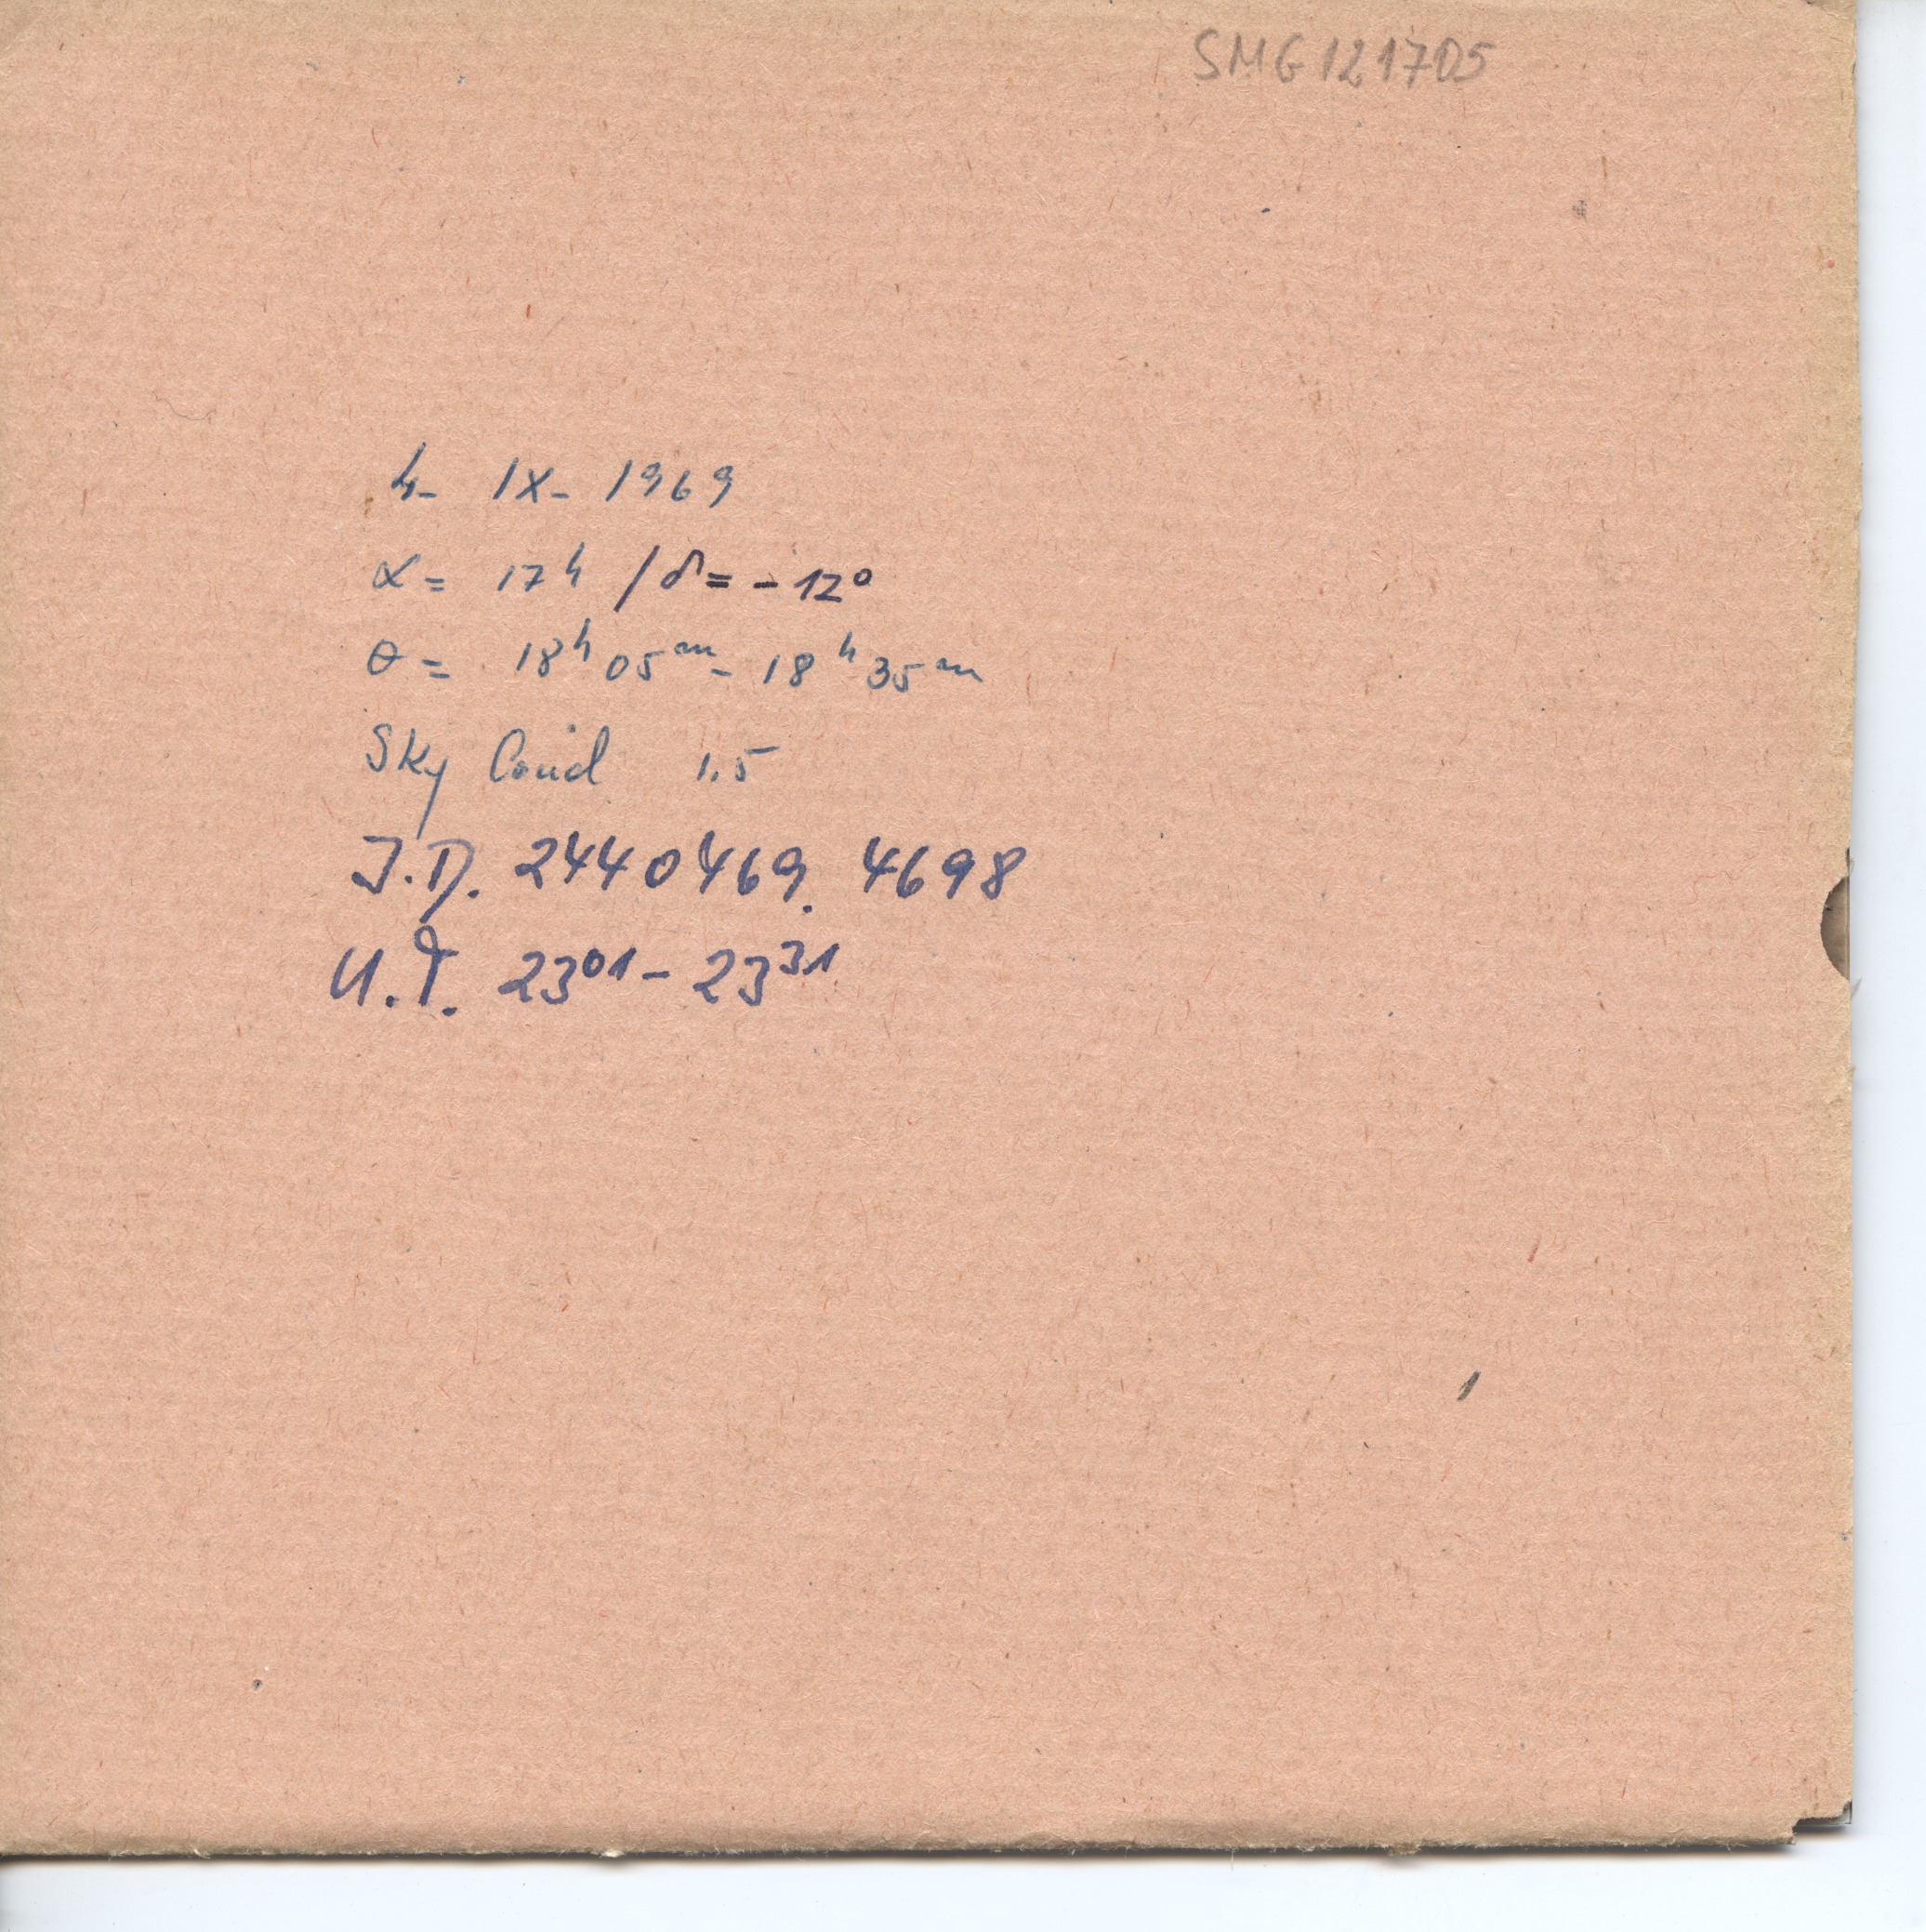 SMG121705
4- IX- 1969
α= 17ʰ /δ= -12°
θ= 18ʰ05ᵐ- 18ʰ35ᵐ
Sky Cond 1.5
J.D. 2440469. 4698
U.T. 23⁰¹ - 23³¹